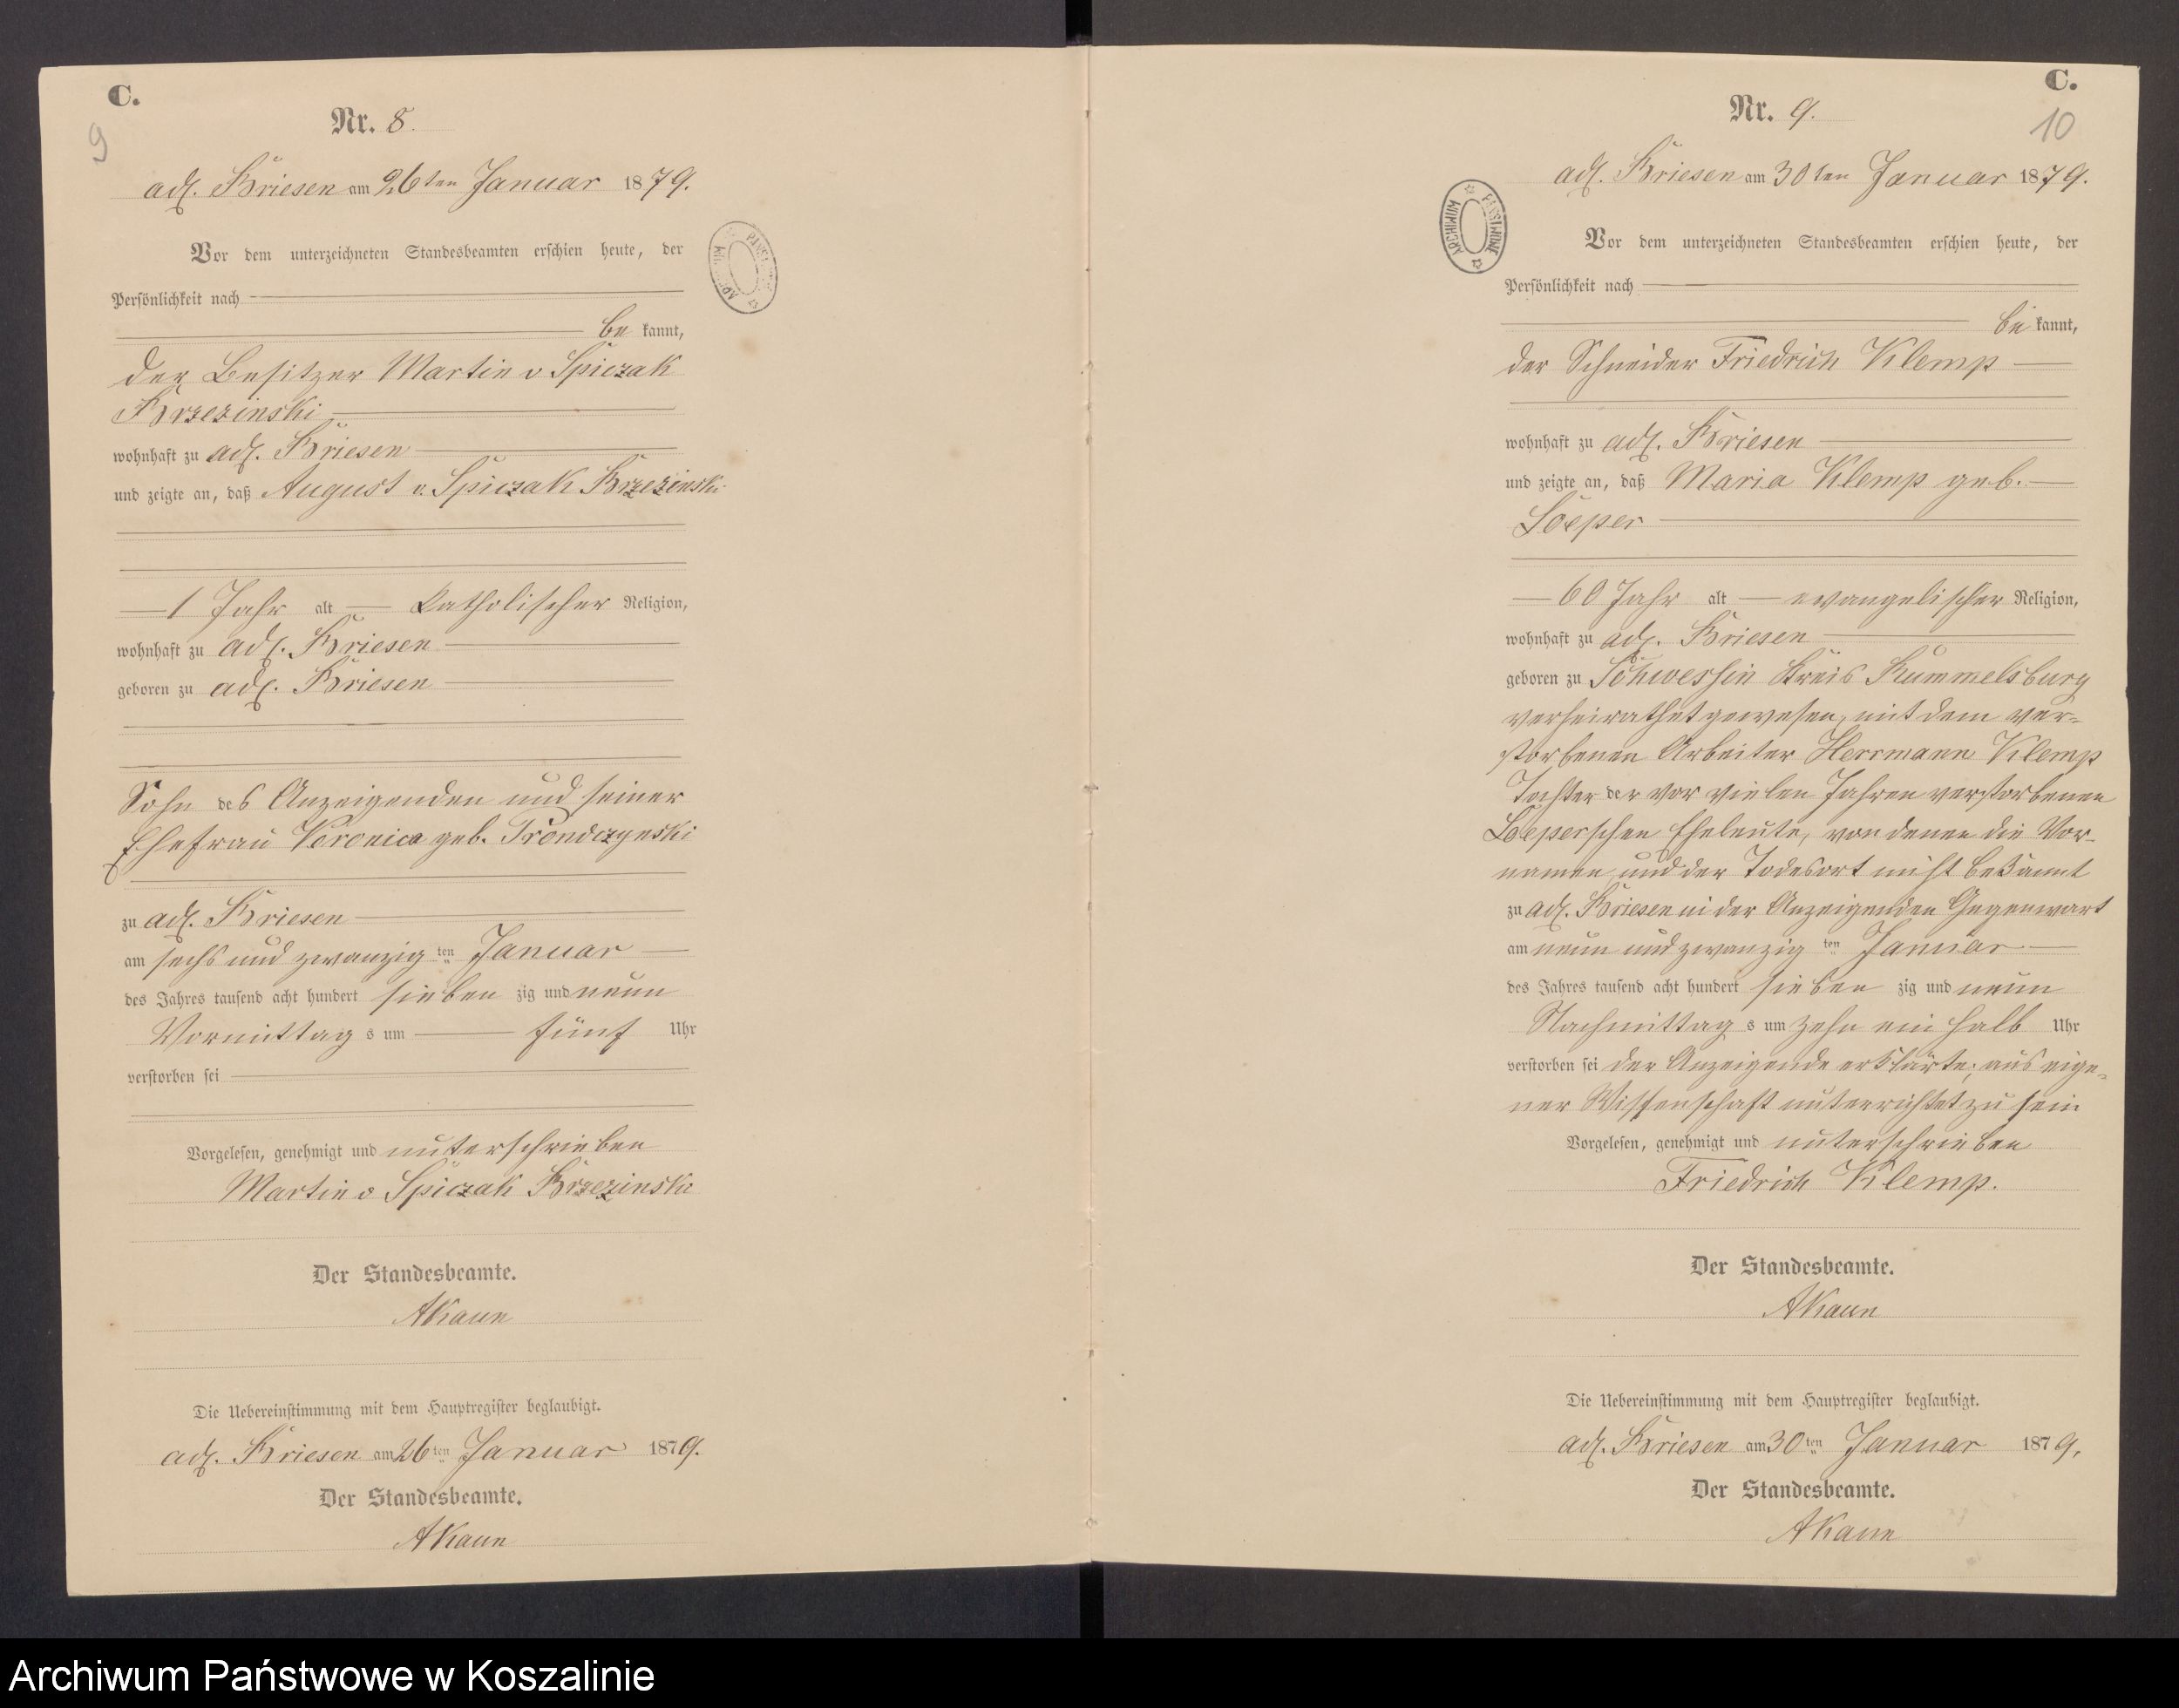 C.
9
Nr. 8.
adl. Briesen am 26ten Januar 1879.
Vor dem unterzeichneten Standesbeamten erschien heute, der
Persönlichkeit nach
be kannt,
der Besitzer Martin v Spiczak
Brzezinski
wohnhaft zu adl. Briesen
und zeigte an, daß August v. Spiczak Brzezinski
1 Jahr alt katholischer Religion,
wohnhaft zu adl. Briesen
geboren zu adl. Briesen
Sohn des Anzeigenden und seiner
Ehefrau Veronica geb. Trendczynski
zu adl. Briesen
am sechs und zwanzig ten Januar
des Jahres tausend acht hundert sieben zig und neun
Vormittag s um fünf Uhr
verstorben sei
Vorgelesen, genehmigt und unterschrieben
Martin v Spiczak Brzezinski
Der Standesbeamte.
AKaun
Die Uebereinstimmung mit dem Hauptregister beglaubigt.
adl. Briesen am 26ten Januar 1879.
Der Standesbeamte.
AKaun
C.
10
Nr. 9.
adl. Briesen am 30ten Januar 1879.
ARCHIWUM PAŃSTWOWE
Vor dem unterzeichneten Standesbeamten erschien heute, der
Persönlichkeit nach
be kannt,
der Schneider Friedrich Klemp
wohnhaft zu adl. Briesen
und zeigte an, daß Maria Klemp geb.
Loeper
60 Jahr alt evangelischer Religion,
wohnhaft zu adl. Briesen
geboren zu Schwessin Kreis Rummelsburg
verheirathet gewesen, mit dem ver-
storbenen Arbeiter Herrmann Klemp
Tochter der vor vielen Jahren verstorbenen
Loeperschen Eheleute, von denen die Vor-
namen und der Todesort nicht bekannt
zu adl. Briesen in der Anzeigenden Gegenwart
am neun und zwanzig ten Januar
des Jahres tausend acht hundert sieben zig und neun
Nachmittag s um zehn ein halb Uhr
verstorben sei der Anzeigende erklärte, aus eige-
ner Wissenschaft unterrichtet zu sein
Vorgelesen, genehmigt und unterschrieben
Friedrich Klemp.
Der Standesbeamte.
AKaun
Die Uebereinstimmung mit dem Hauptregister beglaubigt.
adl. Briesen am 30ten Januar 1879.
Der Standesbeamte.
AKaun
Archiwum Państwowe w Koszalinie